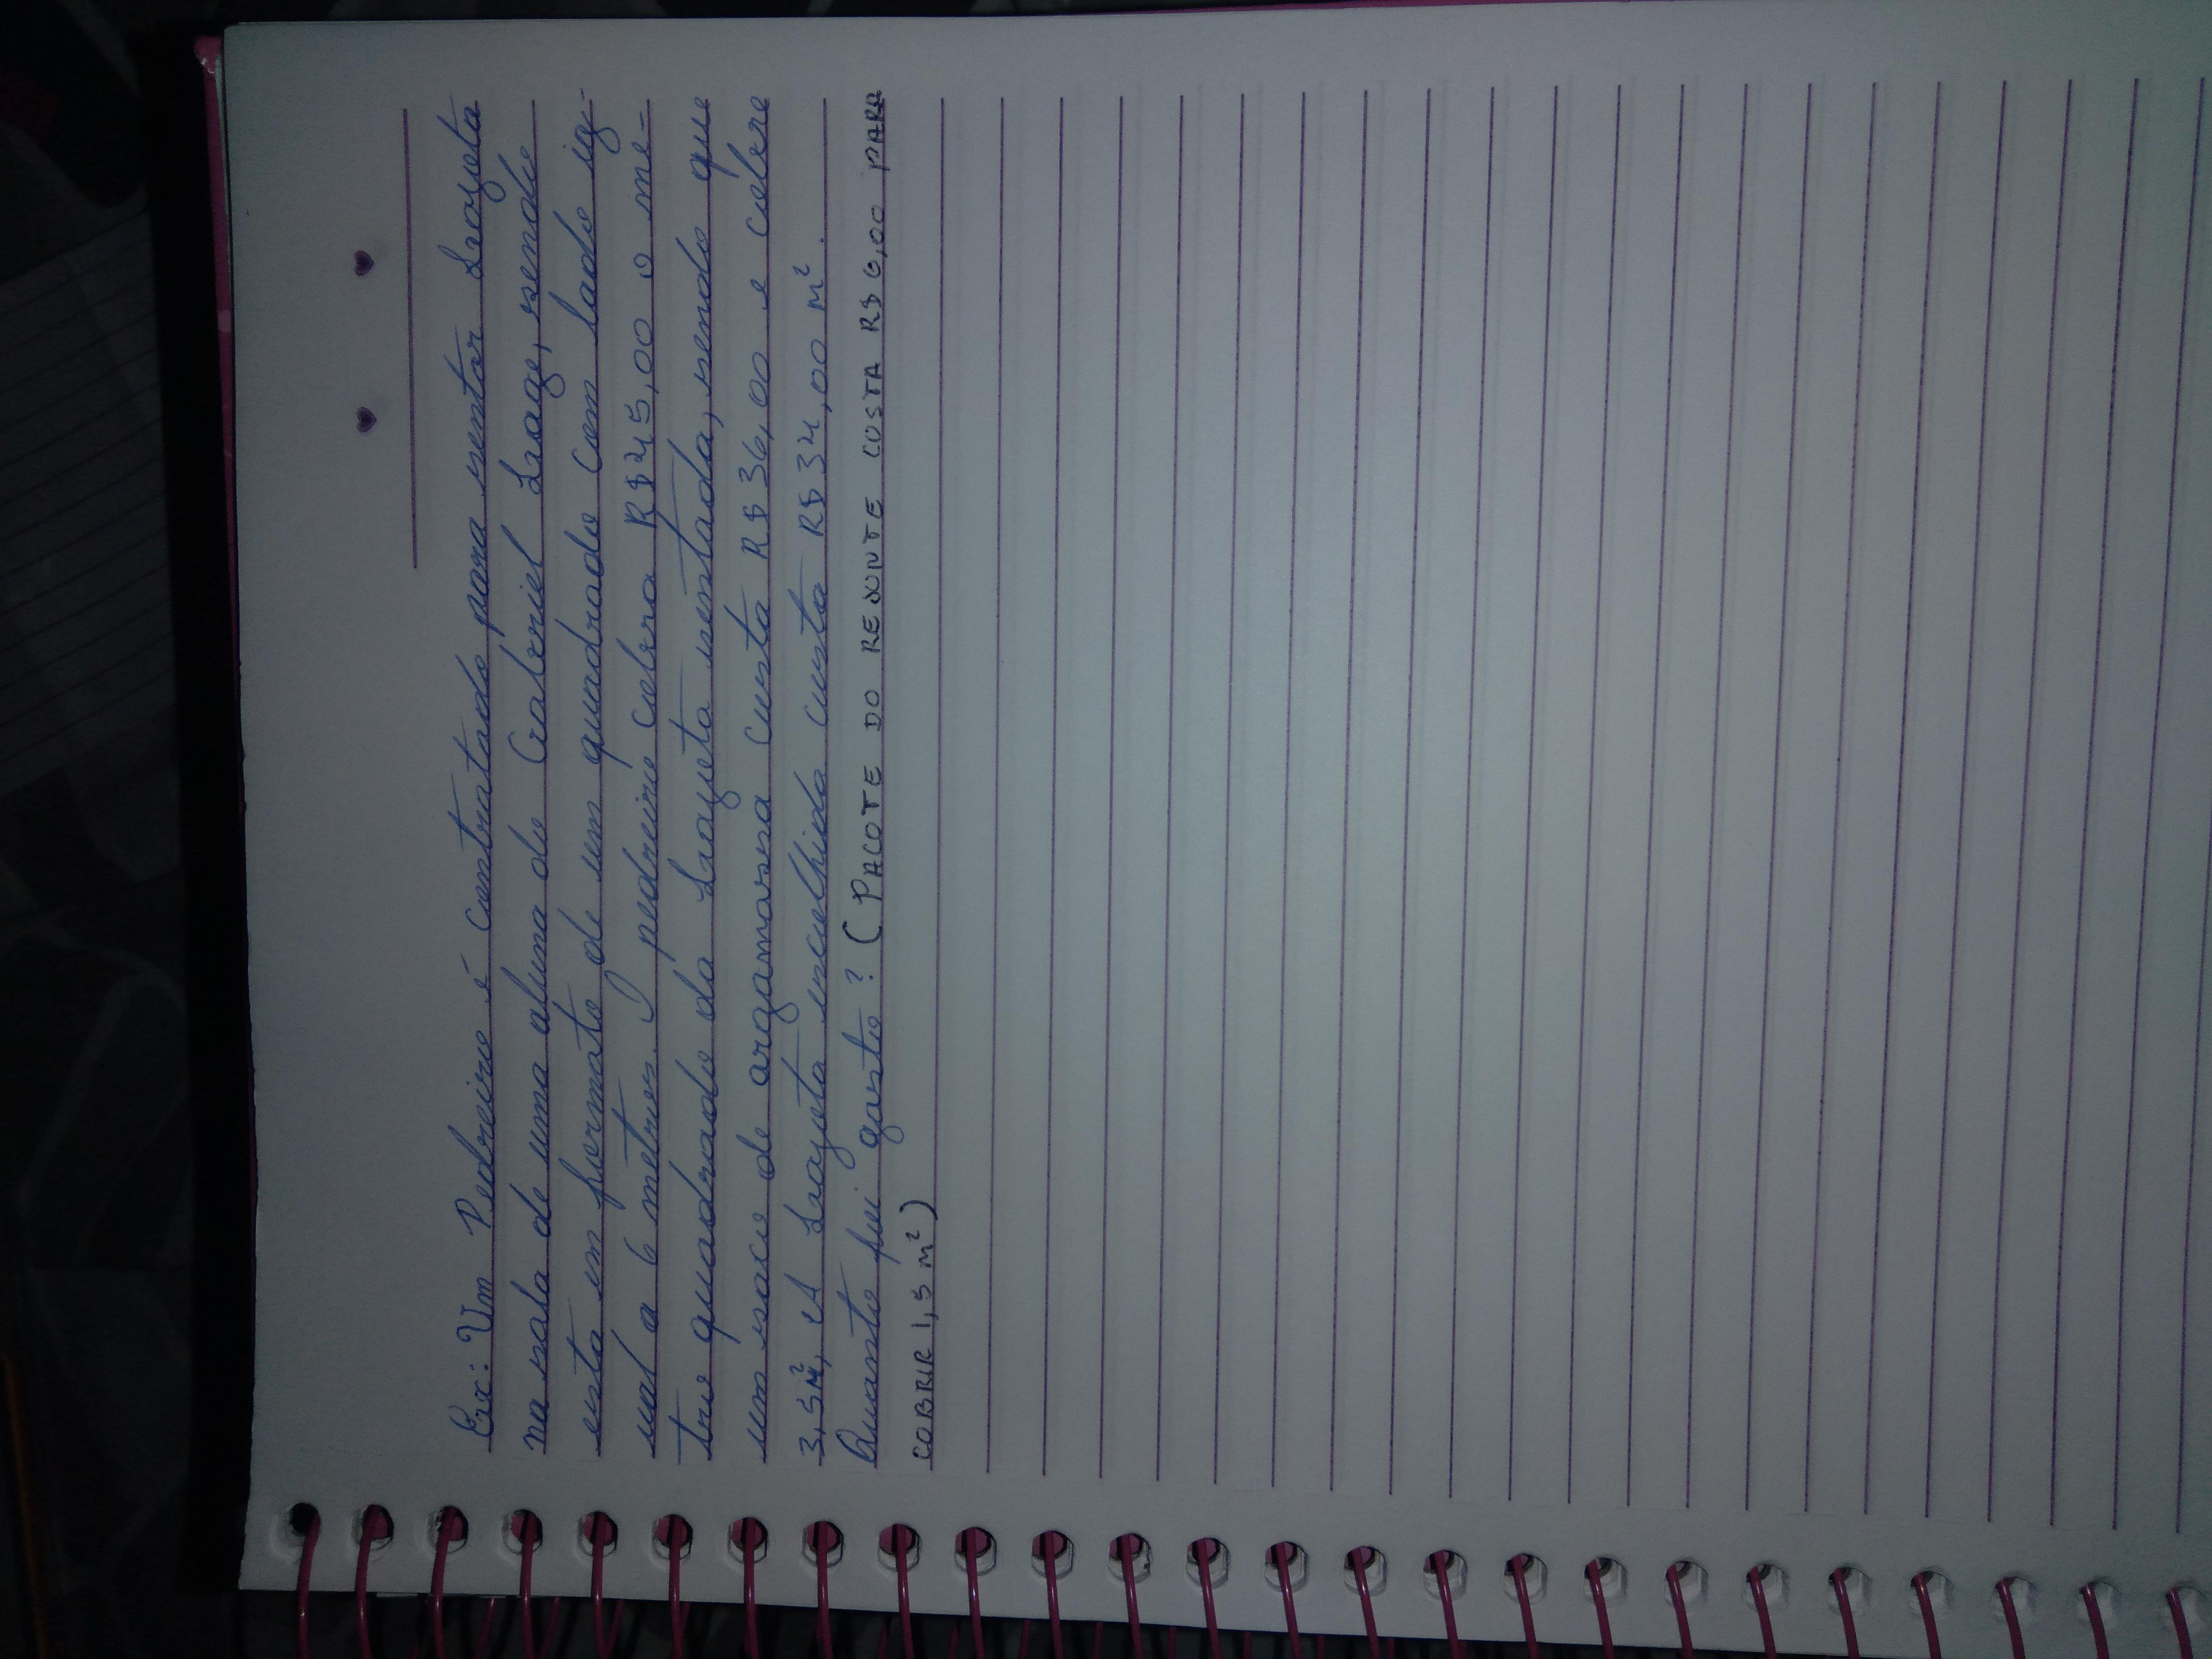 Ex: Um Pedreiro é contratado para sentar Lajota
na sala de uma aluna do Gabriel Lage, sendo
esta em formato de um quadrado com lado ig-
ual a 6 metros. O pedreiro cobra R$245,00 o me-
tro quadrado da Lajota sentada, sendo que
um saco de argamassa custa R$36,00 e cobre
3,5m², A Lajota escolhida custa R$34,00 m².
Quanto foi gasto? (PACOTE DO REJUNTE CUSTA R$6,00 PARA
COBRIR 1,5 m²)